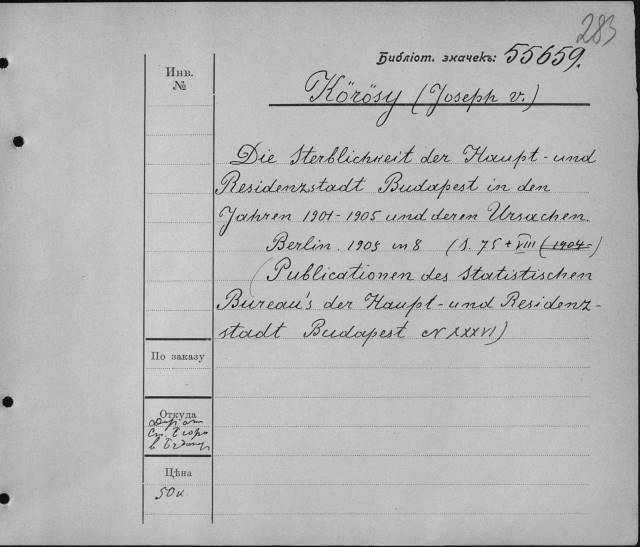 283
Библіот. значекъ: 55659.
Инв.
№
Körösy (Joseph v.)
Die Sterblichkeit der Haupt- und
Residenzstadt Budapest in den
Jahren 1901-1905 und deren Ursachen.
Berlin. 1905 in 8 (S. 75 + VIII (1904)
(Publicationen des Statistischen
Bureau's der Haupt- und Residenz-
stadt Budapest N XXXVI)
По заказу
Откуда
Ст. Бюро
Цѣна
50к